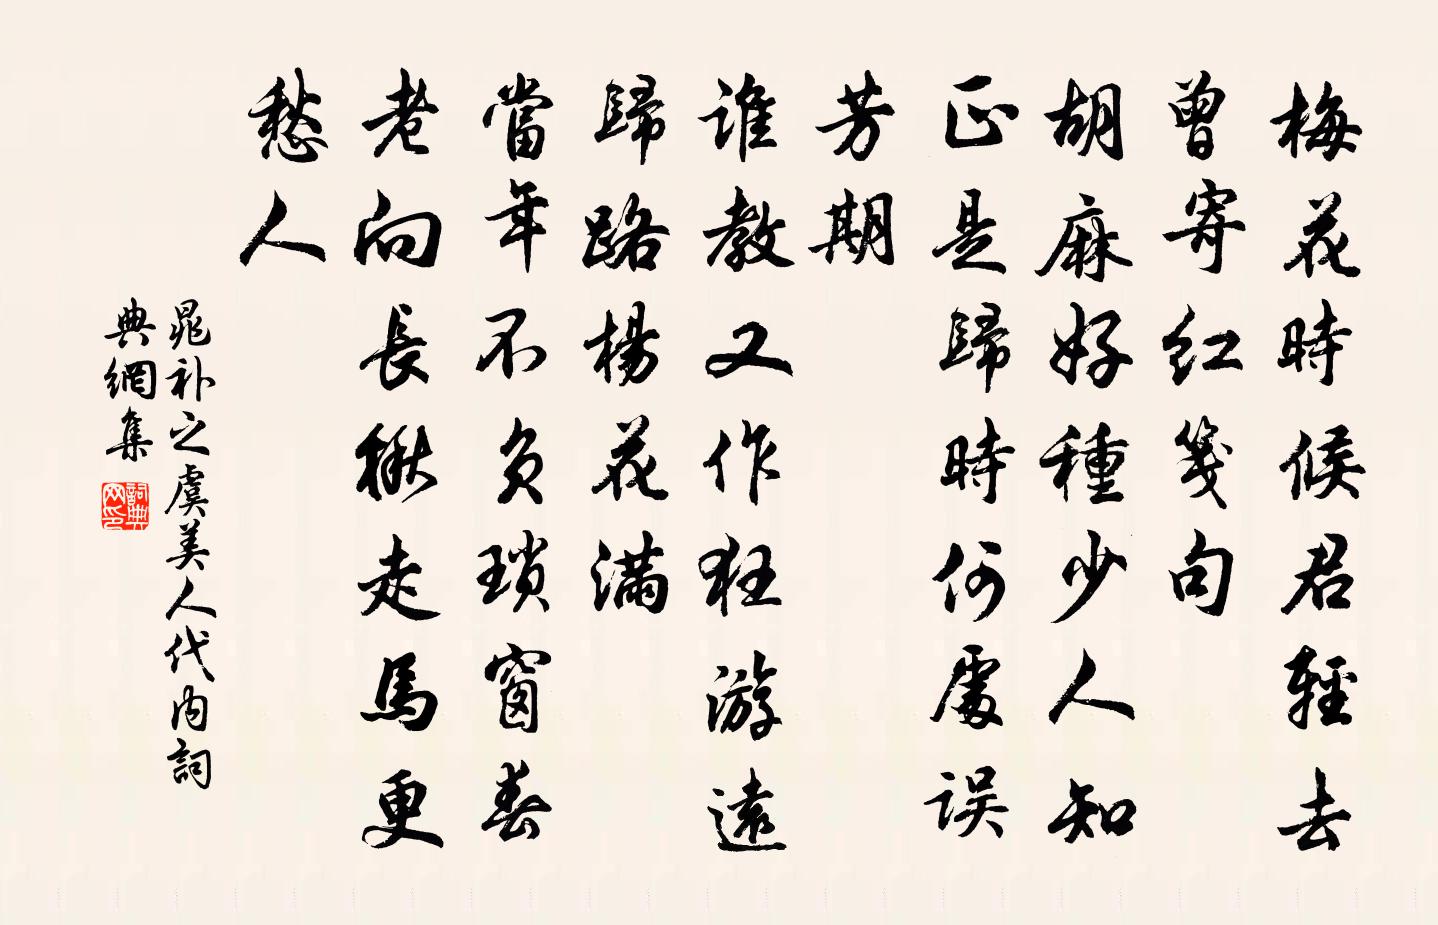 梅花時候君輕去
曾寄红箋句
胡麻好種少人知
正是歸時何處误
芳期
谁教又作狂游遠
歸路楊花滿
當年不负瑣窗春
老向長楸走馬更
愁人
晁补之虞美人代内詞
典網集
詞典
网印